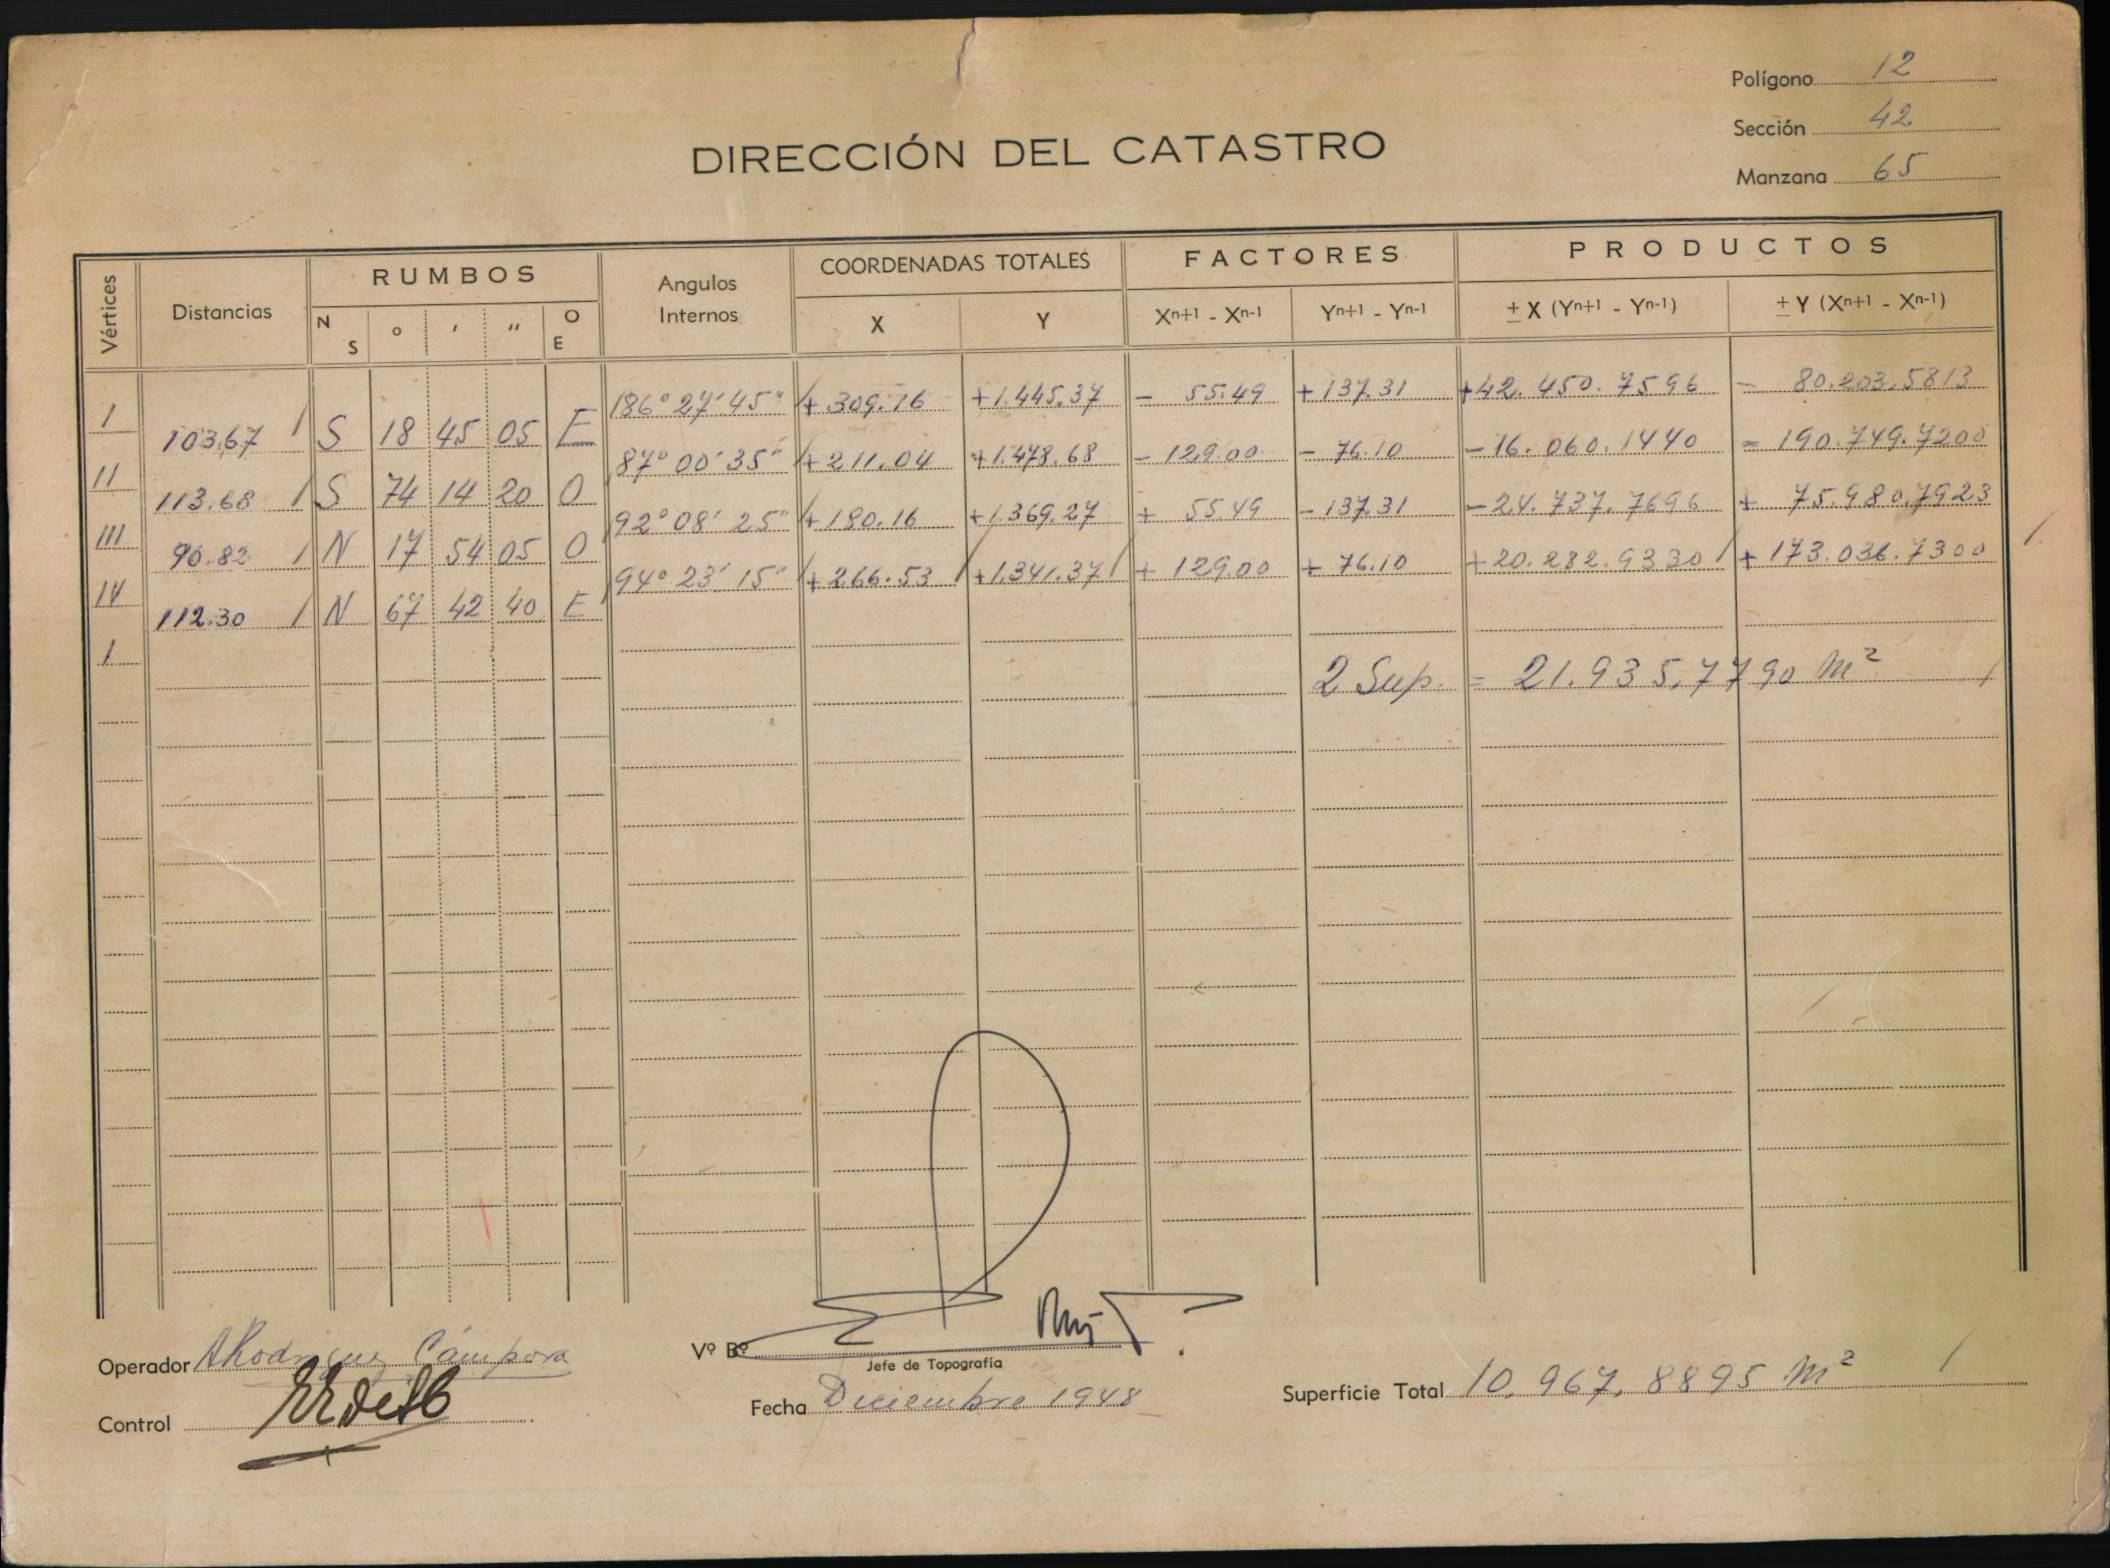 Polígono 12
Sección 42
Manzana 65
DIRECCIÓN DEL CATASTRO
Vértices Distancias RUMBOS Angulos Internos COORDENADAS TOTALES FACTORES PRODUCTOS
N S ° ' " O E X Y Xn+1 - Xn-1 Yn+1 - Yn-1 ± X (Yn+1 - Yn-1) ± Y (Xn+1 - Xn-1)
I 86° 27' 45" + 309.16 + 1.445.37 - 55.49 + 137.31 + 42.450.7596 - 80.203.5813
103.67 S 18 45 05 E
II 87° 00' 35" + 211.04 + 1.478.68 - 129.00 - 76.10 - 16.060.1440 - 190.749.7200
113.68 S 74 14 20 O
III 92° 08' 25" + 180.16 + 1.369.27 + 55.49 - 137.31 - 24.737.7696 + 75.980.7923
90.82 N 17 54 05 O
IV 94° 23' 15" + 266.53 + 1.341.37 + 129.00 + 76.10 + 20.282.9330 + 173.036.7300
112.30 N 67 42 40 E
I
2 Sup. = 21.935,7790 m²
Operador A Rodriguez Cámpora
Control
Vº Bº
Jefe de Topografía
Fecha Diciembre 1948
Superficie Total 10.967,8895 m²